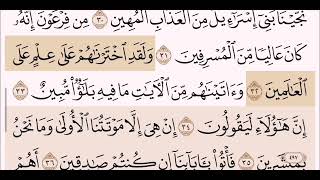 نَجَّيْنَا بَنِىٓ إِسْرَٰٓءِيلَ مِنَ ٱلْعَذَابِ ٱلْمُهِينِ ٣٠ مِن فِرْعَوْنَ إِنَّهُۥ
كَانَ عَالِيًا مِّنَ ٱلْمُسْرِفِينَ ٣١ وَلَقَدِ ٱخْتَرْنَٰهُمْ عَلَىٰ عِلْمٍ عَلَى
ٱلْعَٰلَمِينَ ٣٢ وَءَاتَيْنَٰهُم مِّنَ ٱلْءَايَٰتِ مَا فِيهِ بَلَٰٓؤٌا۟ مُّبِينٌ ٣٣
إِنَّ هَٰٓؤُلَآءِ لَيَقُولُونَ ٣٤ إِنْ هِىَ إِلَّا مَوْتَتُنَا ٱلْأُولَىٰ وَمَا نَحْنُ
بِمُنشَرِينَ ٣٥ فَأْتُوا۟ بِـَٔابَآئِنَآ إِن كُنتُمْ صَٰدِقِينَ ٣٦ أَهُمْ
٤٩٧